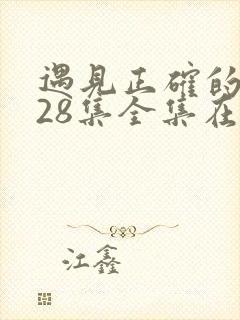 遇见正确的
28集全集在
江鑫